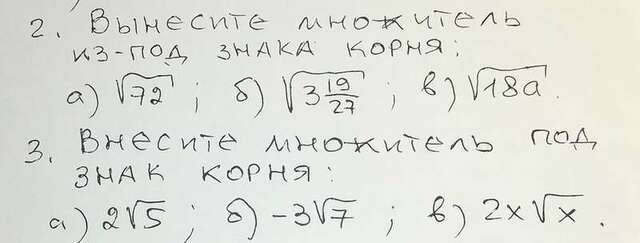 2. Вынесите множитель
из-под знака корня:
а) √72 ; б) √3 19/27 ; в) √18a .
3. Внесите множитель под
знак корня:
а) 2√5 ; б) -3√7 ; в) 2x√x .